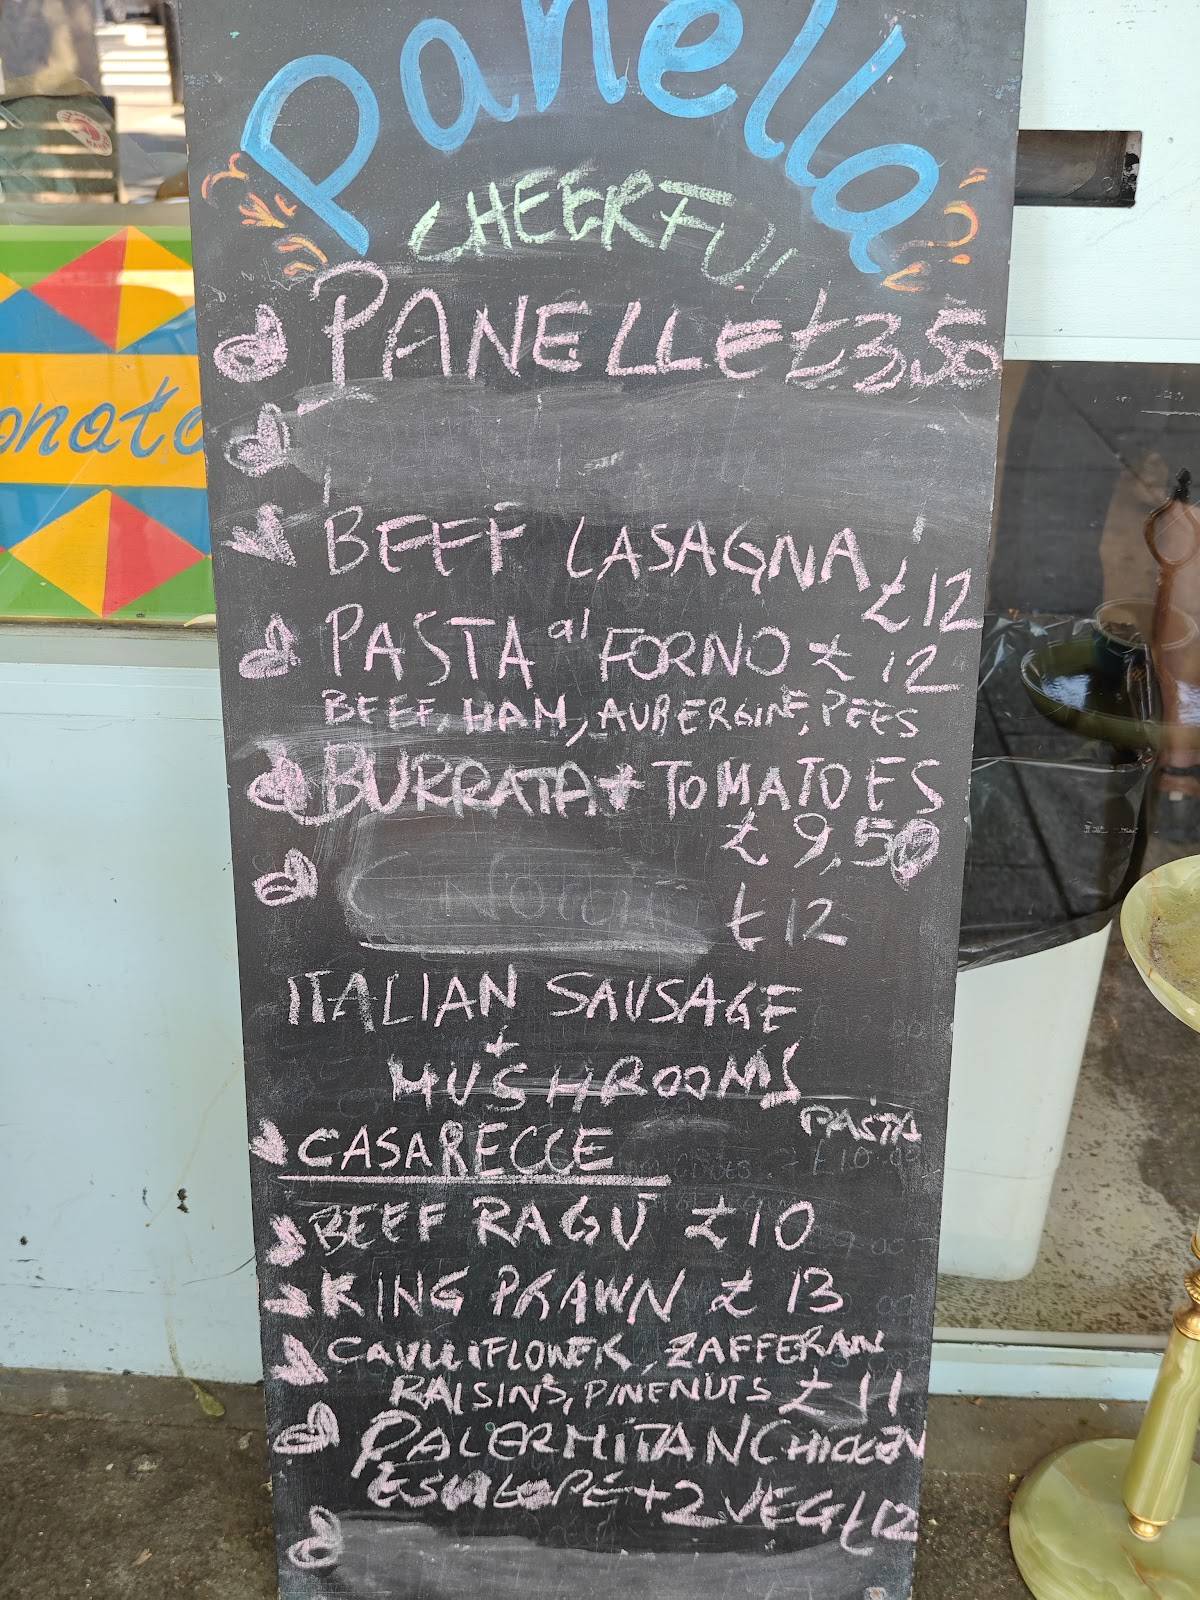 Panella
CHEERFUL
PANELLE £3,50
BEEF LASAGNA
£12
PASTA al FORNO £12
BEEF, HAM, AUBERGINE, PEES
BURRATA + TOMATOES
£9,50
£12
ITALIAN SAUSAGE
+
MUSHROOMS
PASTA
CASARECCE
BEEF RAGÚ £10
KING PRAWN £13
CAVULIFLOWER, ZAFFERAN
RAISINS, PINENUTS £11
PALERMITAN CHICKEN
ESCALOPE + 2 VEG £12
onato